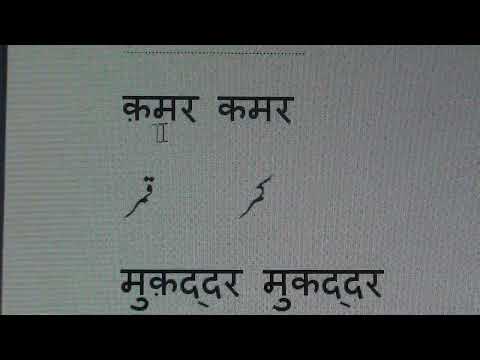 क़मर कमर
قمر کمر
मुक़द्दर मुकद्दर